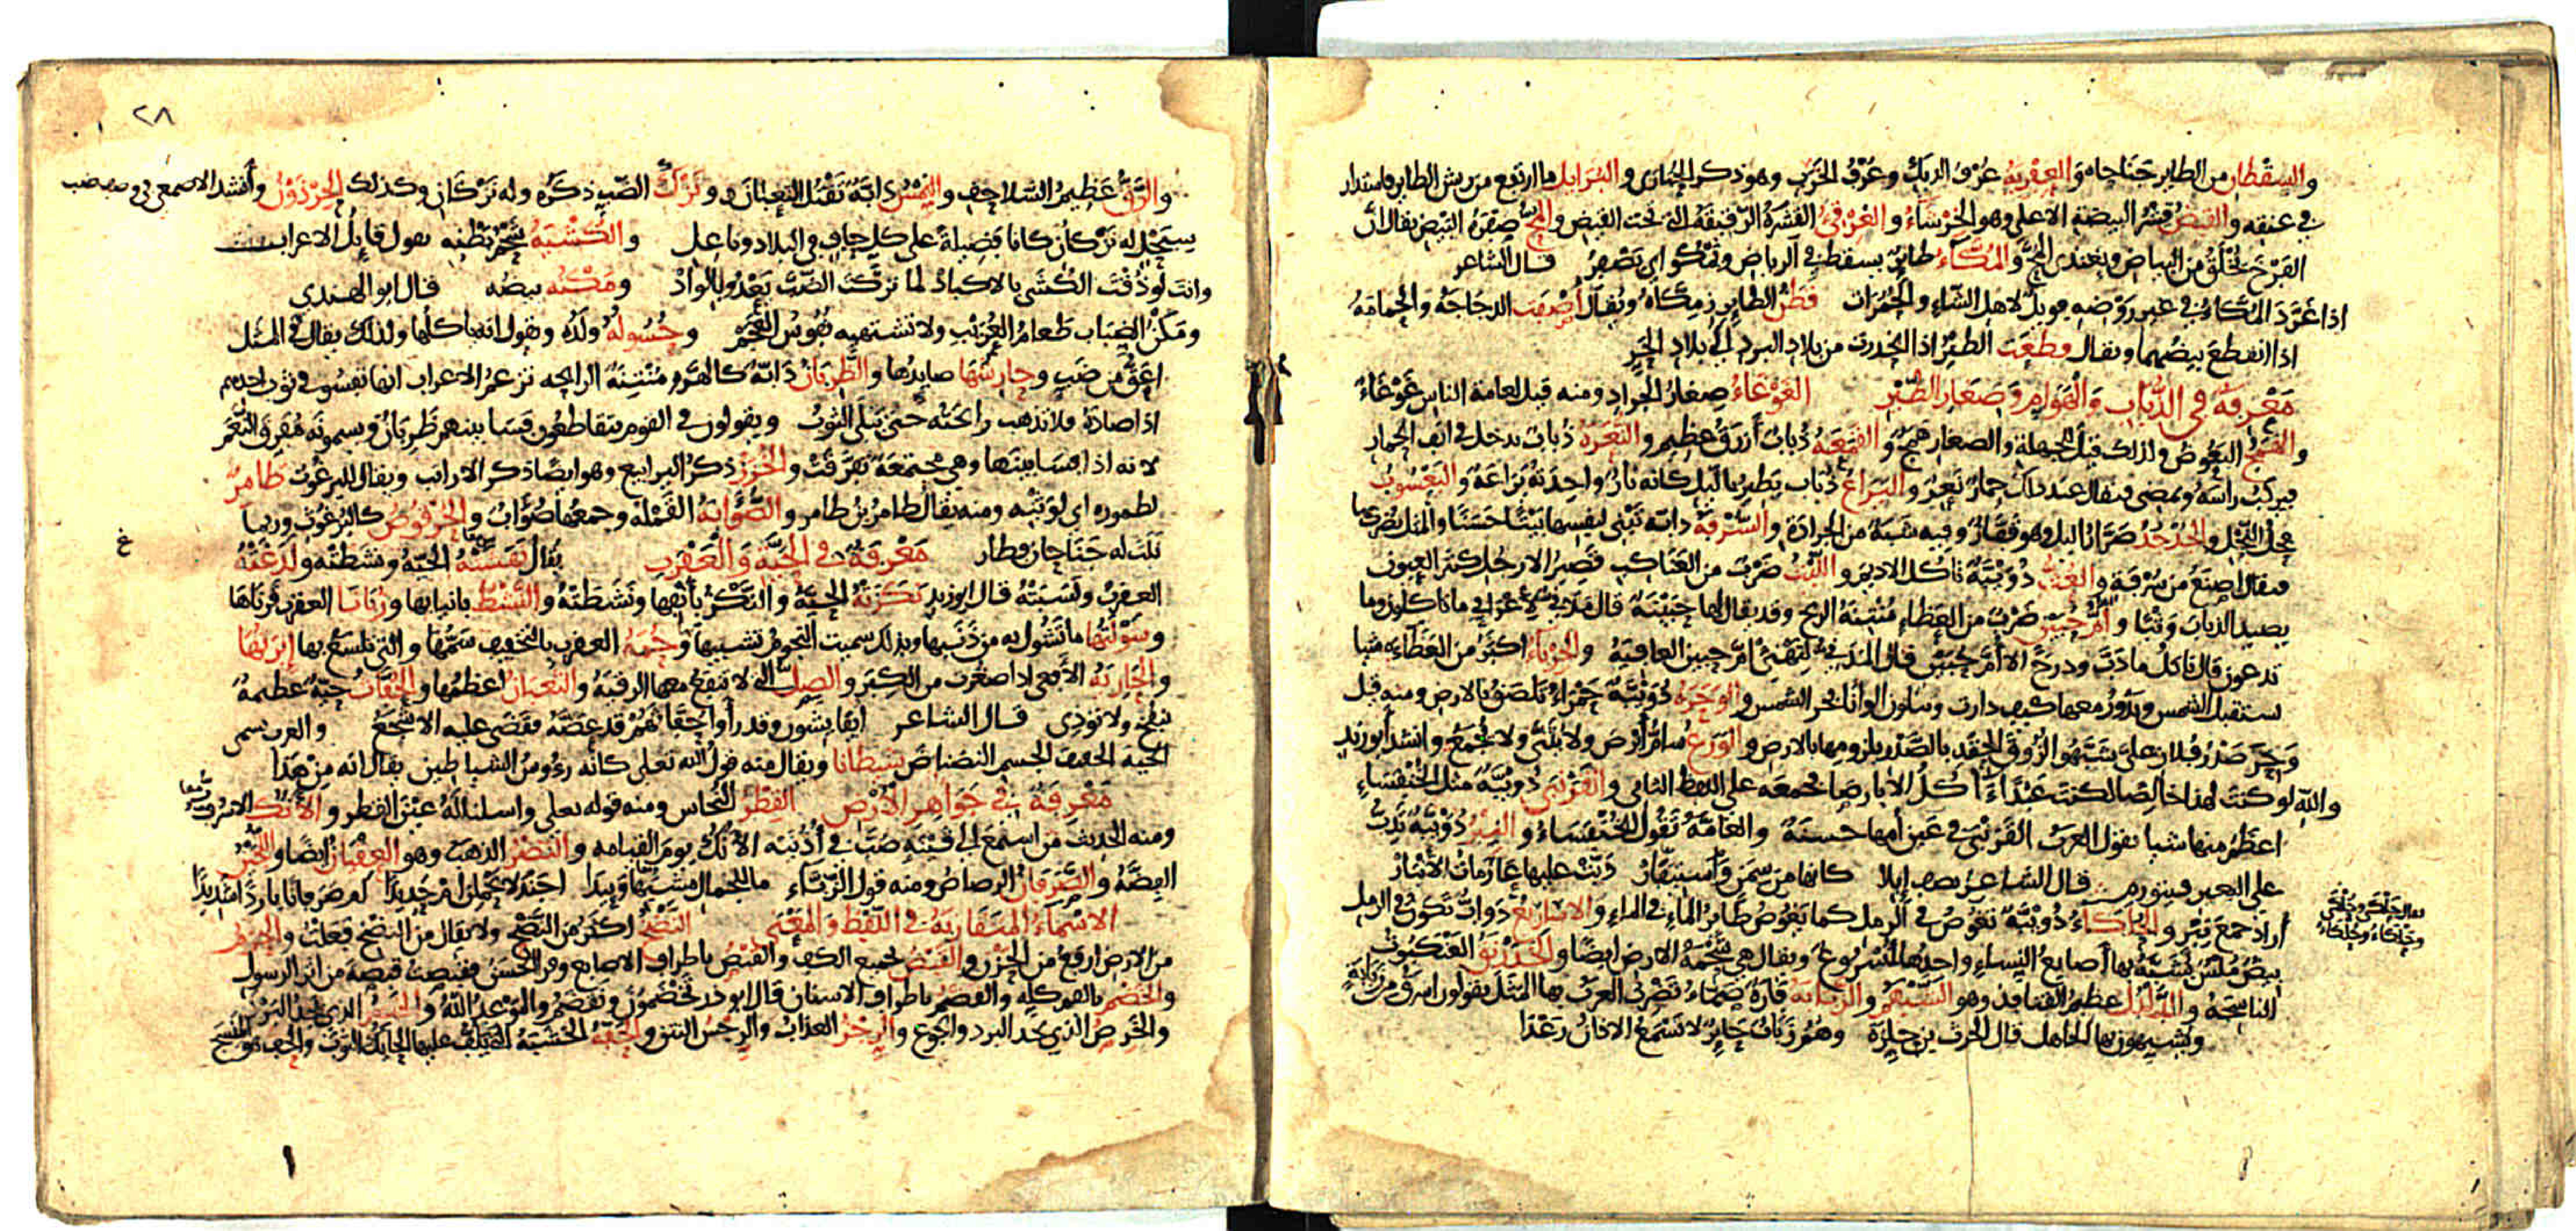 والسقطان من الطاير جناحاه والعفرية عرف الديك وعرف الخرب وهو ذكر الحبارى والبرايل ما ارتفع من ريش الطاير فاستدار
في عنقه والقيض قشر البيضة الاعلى وهو الخرشاء والغرقئ القشرة الرقيقة التي تحت القيض والمح صفرة البيض يقال ان
الفرخ يخلق من البياض ويغتذي المح والمكاء طاير يسقط في الرياض ويمكو اي يصفر قال الشاعر
اذا غرد المكاء في غير روضه فويل لاهل الشاء والحمرات قطن الطاير زمكاه ويقال اصفت الدجاجة والحمامة
اذا انقطع بيضهما ويقال قطعت الطير اذا انحدرت من بلاد البرد الى بلاد الحر
معرفة في الذباب والهوام وصغار الطير الغوغاء صغار الجراد ومنه قيل لعامة الناس غوغاء
والهمج البعوض ولذلك قيل للجهلة والصغار همج والقمعة ذباب ازرق عظيم والنعرة ذباب يدخل في انف الحمار
فيركب راسه ويمضي فيقال عند ذلك حمار نعر واليراع ذباب يطير بالليل كانه نار واحدته يراعة واليعسوب
فحل النحل والجدجد صرار الليل وهو قفاز وفيه شبه من الجرادة والسرفة دابة تبني لنفسها بيتا حسنا والمثل يضرب بها
فيقال اصنع من سرفة والعث دويبة تاكل الاديم والليث ضرب من العناكب قصير الارجل كثير العيون
يصيد الذباب وثبا وام حبين ضرب من العظاء منتنة الريح وقد يقال لها حبينة قال مدني لاعرابي ما تاكلون وما
تدعون قال ناكل ما دب ودرج الا ام حبين قال المدني لتهنئ ام حبين العافية والحرباء اكبر من العظاءة شيا
يستقبل الشمس ويدور معها كيف دارت ويتلون الوانا بحر الشمس والوحرة دويبة حمراء تلصق بالارض ومنه قيل
وحر صدر فلان علي شبهوا لزوق الحقد بالصدر بلزومها بالارض والوزغ سام ابرص ولا يثنى ولا يجمع وانشد ابو زيد
والله لو كنت لهذا خالصا لكنت عبدا آكل الابارصا فجمعه على اللفظ الثاني والقرنبى دويبة مثل الخنفساء
اعظم منها شيا يقول العرب القرنبى في عين امها حسنة والعامة تقول الخنفساء والنبر دويبة تدب
على البعير فيتورم قال الشاعر يصف ابلا كانها من سمن واستيقار دبت عليها عارمات الانبار
اراد جمع نبر والحلكاء دويبة تغوص في الرمل كما يغوص طاير الماء في الماء والاساريع دواب تكون في الرمل
بيض ملس يشبه بها اصابع النساء واحدها اسروع ويقال هي شحمة الارض ايضا والخدرنق العنكبوت
الناسجة والدلدل عظيم القنافذ وهو الشيهم والزبابة فارة صماء تضرب العرب بها المثل يقولون اسرق من زبابة
ويشبهون بها الجاهل قال الحرث بن حلزة وهم زباب حاير لا تسمع الاذان رعدا
يقال حلكى وحلكى
وحلكاء وحلكاء
٢٨
والرق عظيم السلاحف والنمس دابة تقتل الثعبان ونزك الضب ذكره وله نزكان وكذلك الحرذون وانشد الاصمعي في وصف ضب
سبحل له نزكان كانا فضيلة على كل حاف في البلاد وناعل والكشية شحم بطنه يقول قايل الاعراب
وانت لو ذقت الكشى بالاكباد لما تركت الضب يعدو بالواد ومكنه بيضه قال ابو الهندي
ومكن الضباب طعام العريب ولا تشتهيه نفوس العجم وحسوله ولده ويقول انه ياكلها ولذلك يقال في المثل
اعق من ضب وحارشها صايدها والظربان دابة كالهر منتنة الرايحة تزعم الاعراب انها تفسو في ثوب احدهم
اذا صادها فلا تذهب رائحته حتى يبلى الثوب ويقولون في القوم يتقاطعون فسا بينهم ظربان ويسمونه مفرق النعم
لانه اذا فسا بينها وهي مجتمعة تفرقت والخزز ذكر اليرابيع وهو ايضا ذكر الارانب ويقال للبرغوث طامر
لطموره اي لوثبه ومنه يقال طامر بن طامر والصؤابة القملة وجمعها صؤاب والحرقوص كالبرغوث وربما
نبت له جناحان فطار معرفة في الحية والعقرب يقال نهشته الحية ونشطته ولدغته
العقرب ولسبته قال ابو زيد نكزته الحية والنكز بانفها ونشطته والنشط بانيابها وزبانا العقرب قرناها
وشولتها ما تشول به من ذنبها وبذلك سميت النجوم تشبيها وحمة العقرب بالتخفيف سمها والتي تلسع بها ابرتها
والحارية الافعى اذا صغرت من الكبر والصل التي لا تنفع معها الرقية والثعبان اعظمها والحفاث حية عظيمة
تنفخ ولا توذي قال الشاعر ايفايشون وقد رأوا حفاثهم قد عضه فقضى عليه الاشجع والعرب تسمي
الحية الخفيف الجسم النضناض شيطانا ويقال منه قول الله تعلى كانه رءوس الشياطين يقال انه من هذا
معرفة في جواهر الارض القطر النحاس ومنه قوله تعلى واسلنا له عين القطر والآنك الاسرب
ومنه الحديث من استمع الى قينة صب في اذنيه الآنك يوم القيامة والنضر الذهب وهو العقيان ايضا واللجين
الفضة والصرفان الرصاص ومنه قول الزباء ما للجمال مشيها وييدا اجندلا يحملن ام حديدا ام صرفانا باردا شديدا
الاسماء المتقاربة في اللفظ والمعنى النضخ اكثر من النضح ولا يقال من النضخ فعلت والحزم
من الارض ارفع من الحزن والقبض لجميع الكف والقبص باطراف الاصابع وقرا الحسن فقبصت قبصة من اثر الرسول
والخضم بالفم كله والقضم باطراف الاسنان قال ابو ذر تخضمون ونقضم والموعد الله والخصر الذي يجد البرد
والخرص الذي يجد البرد والجوع والرجز العذاب والرجس النتن والحفة الخشبة التي يلف عليها الحايك الثوب والحف هو المنسج